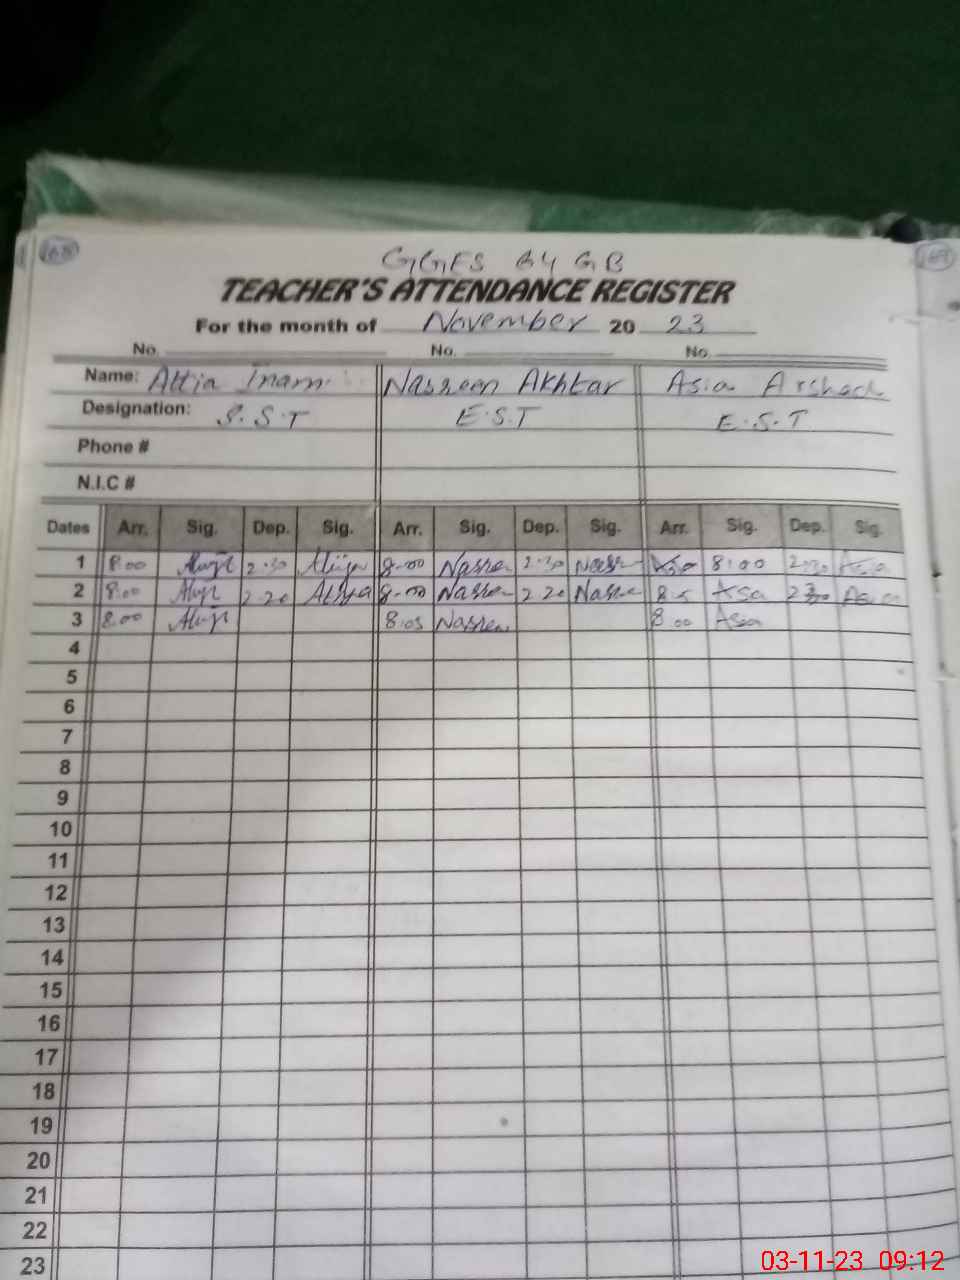 168 169
GGES 64 GB
TEACHER'S ATTENDANCE REGISTER
For the month of November 20 23
No. No. No.
Name: Attia Inam Nasreen Akhtar Asia Arshad
Designation: S.S.T E.S.T E.S.T
Phone #
N.I.C #
Dates Arr. Sig. Dep. Sig. Arr. Sig. Dep. Sig. Arr. Sig. Dep. Sig.
1 8:00 2:30 8-00 Nasreen 2:30 Nasreen Asia 8:00 2:30 Asia
2 8:00 2:20 Attiya 8-00 Nasreen 2:20 Nasreen Asia 230 Asia
3 8:00 8:05 Nasreen 8:00 Asia
4
5
6
7
8
9
10
11
12
13
14
15
16
17
18
19
20
21
22
23
03-11-23 09:12